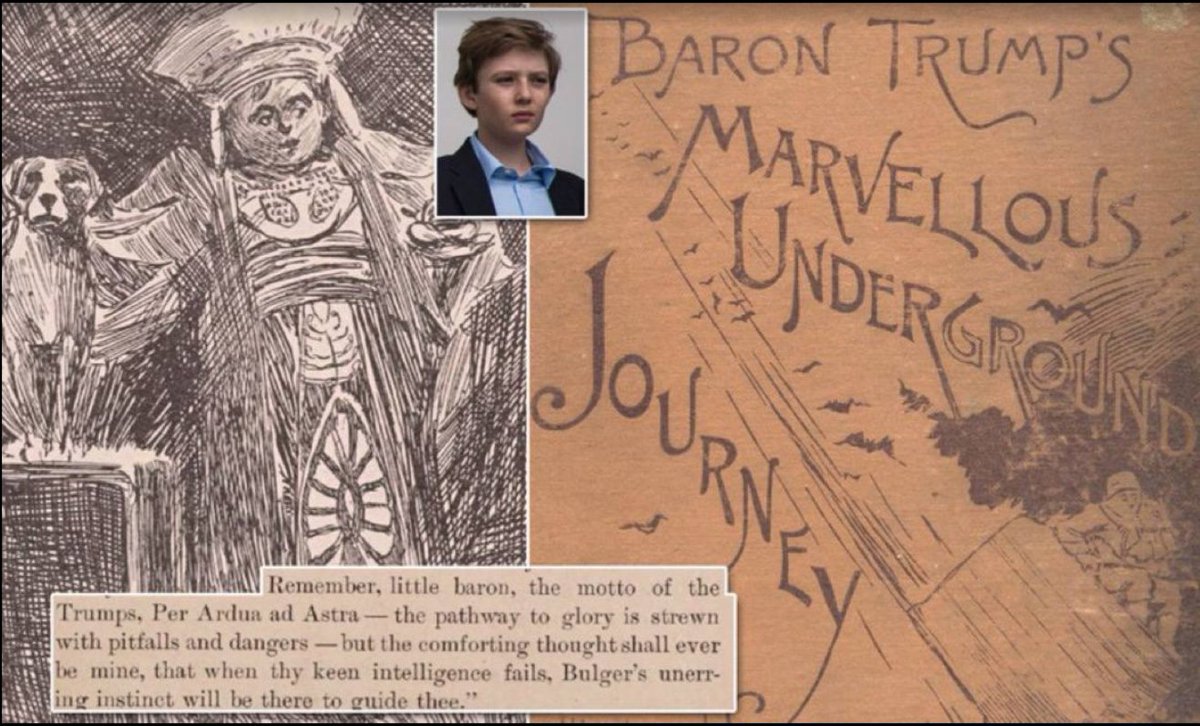 BARON TRUMP'S
MARVELLOUS
UNDERGROUND
JOURNEY
Remember, little baron, the motto of the
Trumps, Per Ardua ad Astra — the pathway to glory is strewn
with pitfalls and dangers — but the comforting thought shall ever
be mine, that when thy keen intelligence fails, Bulger's unerr-
ing instinct will be there to guide thee."